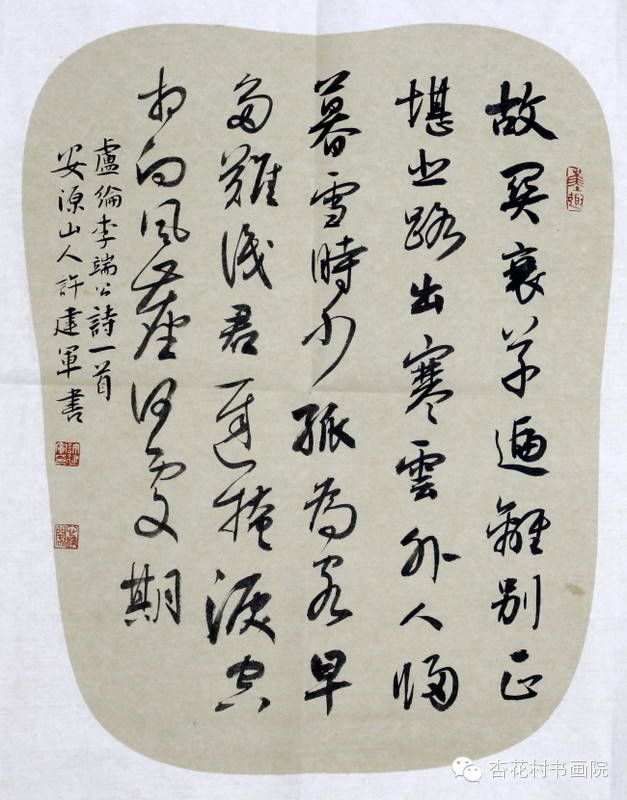 故關衰草遍離別正
堪悲路出寒雲外人歸
暮雪時少孤為客早
多難識君遲掩淚空
相向風塵何處期
盧綸李端公詩一首
安源山人許建軍書
杏花村书画院